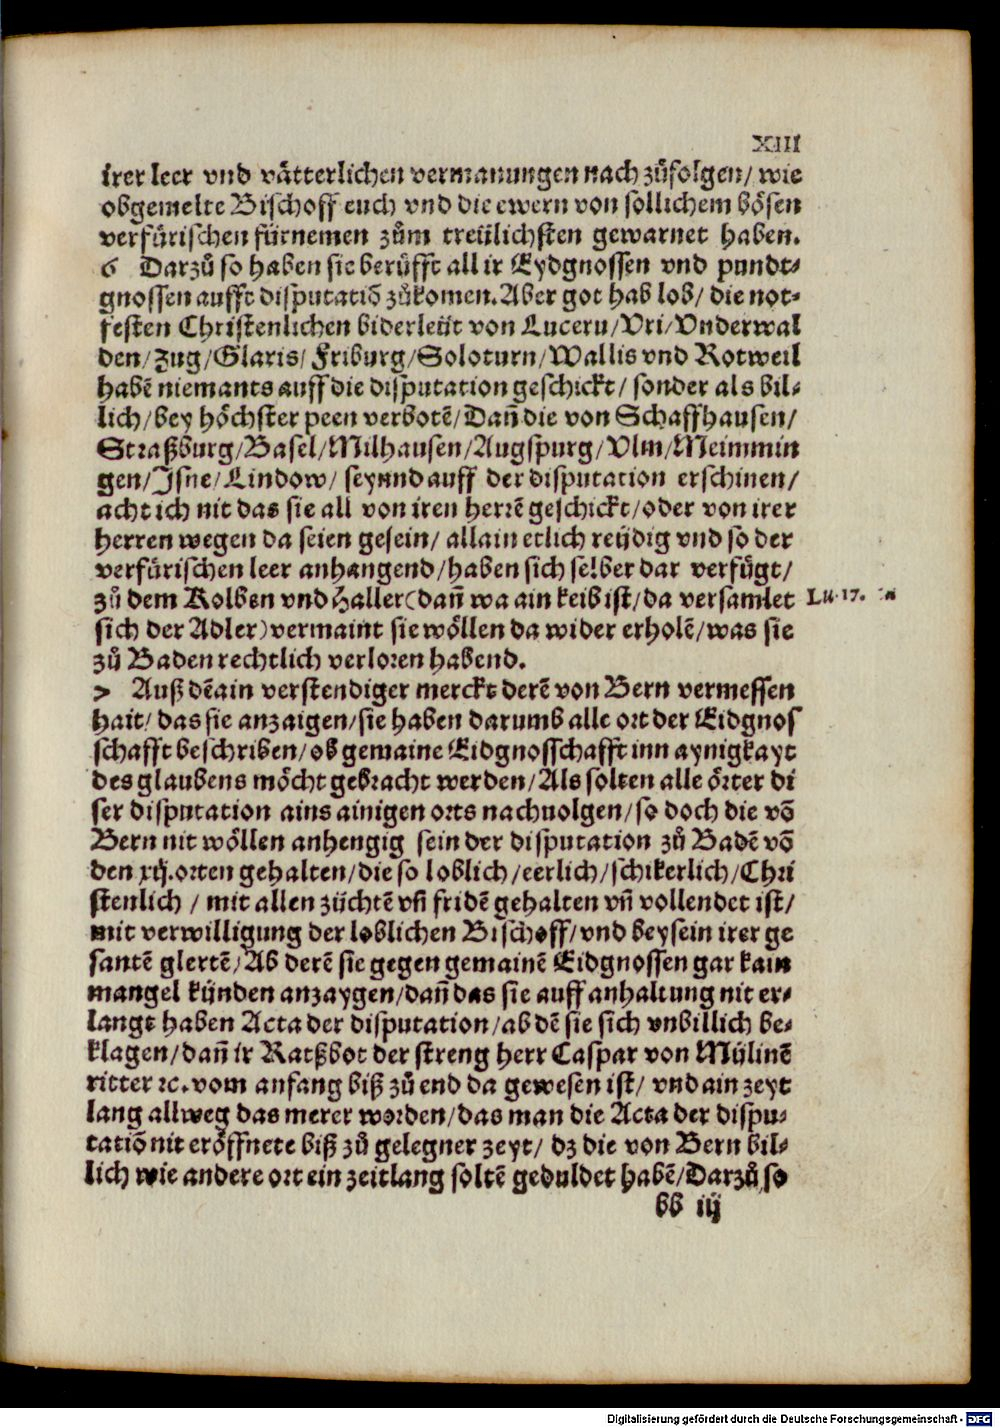 XIII
irer leer vnd vätterlichen vermanungen nach zůfolgen/ wie
obgemelte Bischoff euch vnd die ewern von sollichem bösen
verfürischen fürnemen zům treülichsten gewarnet haben.
6 Darzů so haben sie berüfft all ir Eydgnossen vnd pundt-
gnossen aufft disputatiō zůkomen. Aber got hab lob/ die not-
festen Christenlichen biderleüt von Lucern/ Vri/ Vnderwal
den/ Zug/ Glaris/ Friburg/ Soloturn/ Wallis vnd Rotweil
habē niemants auff die disputation geschickt/ sonder als bil-
lich/ bey höchster peen verbotē/ Dañ die von Schaffhausen/
Straßburg/ Basel/ Milhausen/ Augspurg/ Vlm/ Meimmin
gen/ Isne/ Lindow/ seynnd auff der disputation erschinen/
acht ich nit das sie all von iren herrē geschickt/ oder von irer
herren wegen da seien gesein/ allain etlich reüdig vnd so der
verfürischen leer anhangend/ haben sich selber dar verfügt/
zů dem Kolben vnd Haller (dañ wa ain keib ist/ da versamlet
Lu. 17.
sich der Adler) vermaint sie wöllen da wider erholē/ was sie
zů Baden rechtlich verloren habend.
7 Auß dē ain verstendiger merckt derē von Bern vermessen
hait/ das sie anzaigen/ sie haben darumb alle ort der Eidgnos
schafft beschriben/ ob gemaine Eidgnosschafft inn aynigkayt
des glaubens möcht gebracht werden/ Als solten alle örter di
ser disputation ains ainigen orts nachuolgen/ so doch die vō
Bern nit wöllen anhengig sein der disputation zů Badē vō
den xij. orten gehalten/ die so loblich/ eerlich/ schikerlich/ Chri
stenlich/ mit allen züchtē vñ fridē gehalten vñ vollendet ist/
mit verwilligung der loblichen Bischoff/ vnd beysein irer ge
santē glertē/ Ab derē sie gegen gemainē Eidgnossen gar kain
mangel künden anzaygen/ dañ das sie auff anhaltung nit er-
langt haben Acta der disputation/ ab dē sie sich vnbillich be-
klagen/ dañ ir Ratßbot der streng herr Caspar von Mülinē
ritter ꝛc. vom anfang biß zů end da gewesen ist/ vnd ain zeyt
lang allweg das merer worden/ das man die Acta der dispu-
tatiō nit eröffnete biß zů gelegner zeyt/ dz die von Bern bil-
lich wie andere ort ein zeitlang soltē geduldet habē/ Darzů so
bb iij
Digitalisierung gefördert durch die Deutsche Forschungsgemeinschaft - DFG